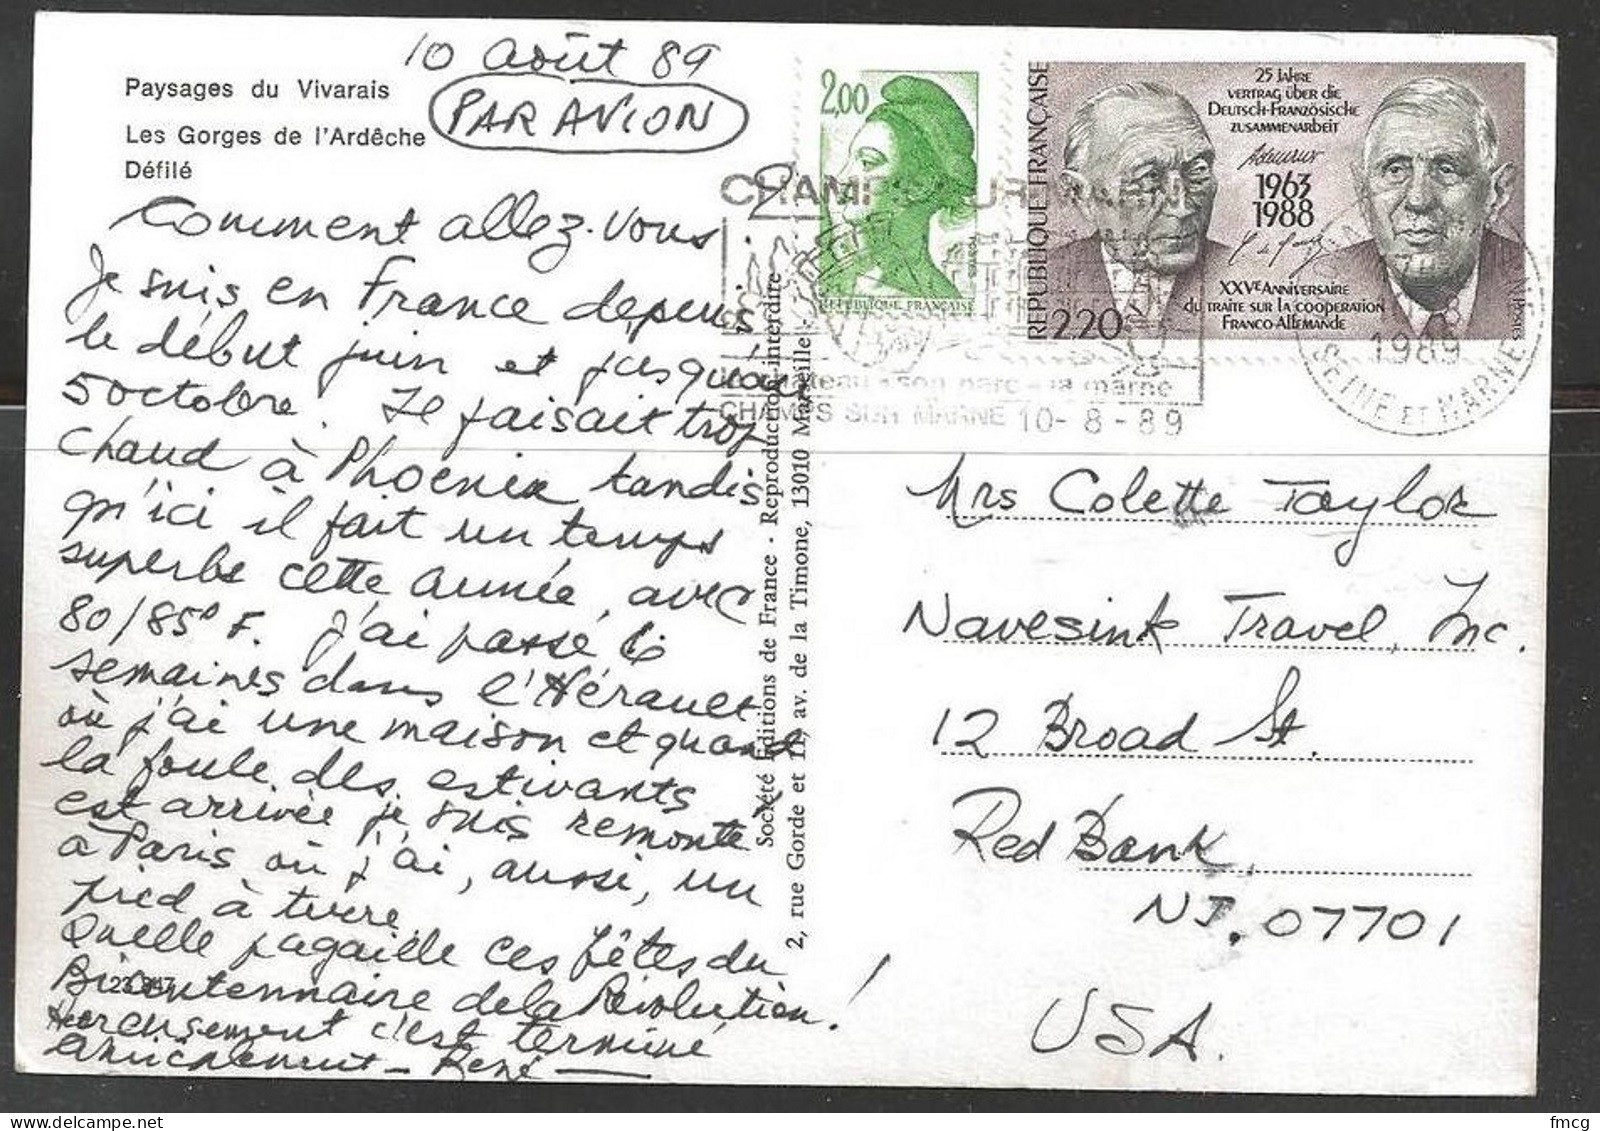 10 août 89
PAR AVION
Paysages du Vivarais
Les Gorges de l'Ardêche
Défilé
Comment allez-vous.
Je suis en France depuis
le début juin et jusqu'au
5 octobre. Il faisait trop
chaud à Phoenix tandis
qu'ici il fait un temps
superbe cette année, avec
80/85° F. J'ai passé 6
semaines dans l'Hérault
où j'ai une maison et quand
la foule des estivants
est arrivée je suis remonté
à Paris où j'ai, aussi, un
pied à terre.
Quelle pagaille ces fêtes du
Bicentennaire de la Révolution!
Heureusement c'est terminé
amicalement - René
Société Éditions de France - Reproduction interdite
2, rue Gorde et 11, av. de la Timone, 13010 Marseille
2,00
REPUBLIQUE FRANÇAISE
RÉPUBLIQUE FRANÇAISE
2,20
25 JAHRE
VERTRAG ÜBER DIE
DEUTSCH-FRANZÖSISCHE
ZUSAMMENARBEIT
Adenauer
1963
1988
XXVE ANNIVERSAIRE
DU TRAITE SUR LA COOPERATION
FRANCO-ALLEMANDE
CHAMPS SUR MARNE
le château - son parc - la marne
CHAMPS SUR MARNE 10-8-89
1989
SEINE ET MARNE
Mrs Colette Taylor
Navesink Travel, Inc.
12 Broad St.
Red Bank,
NJ. 07701
USA.
fmcg